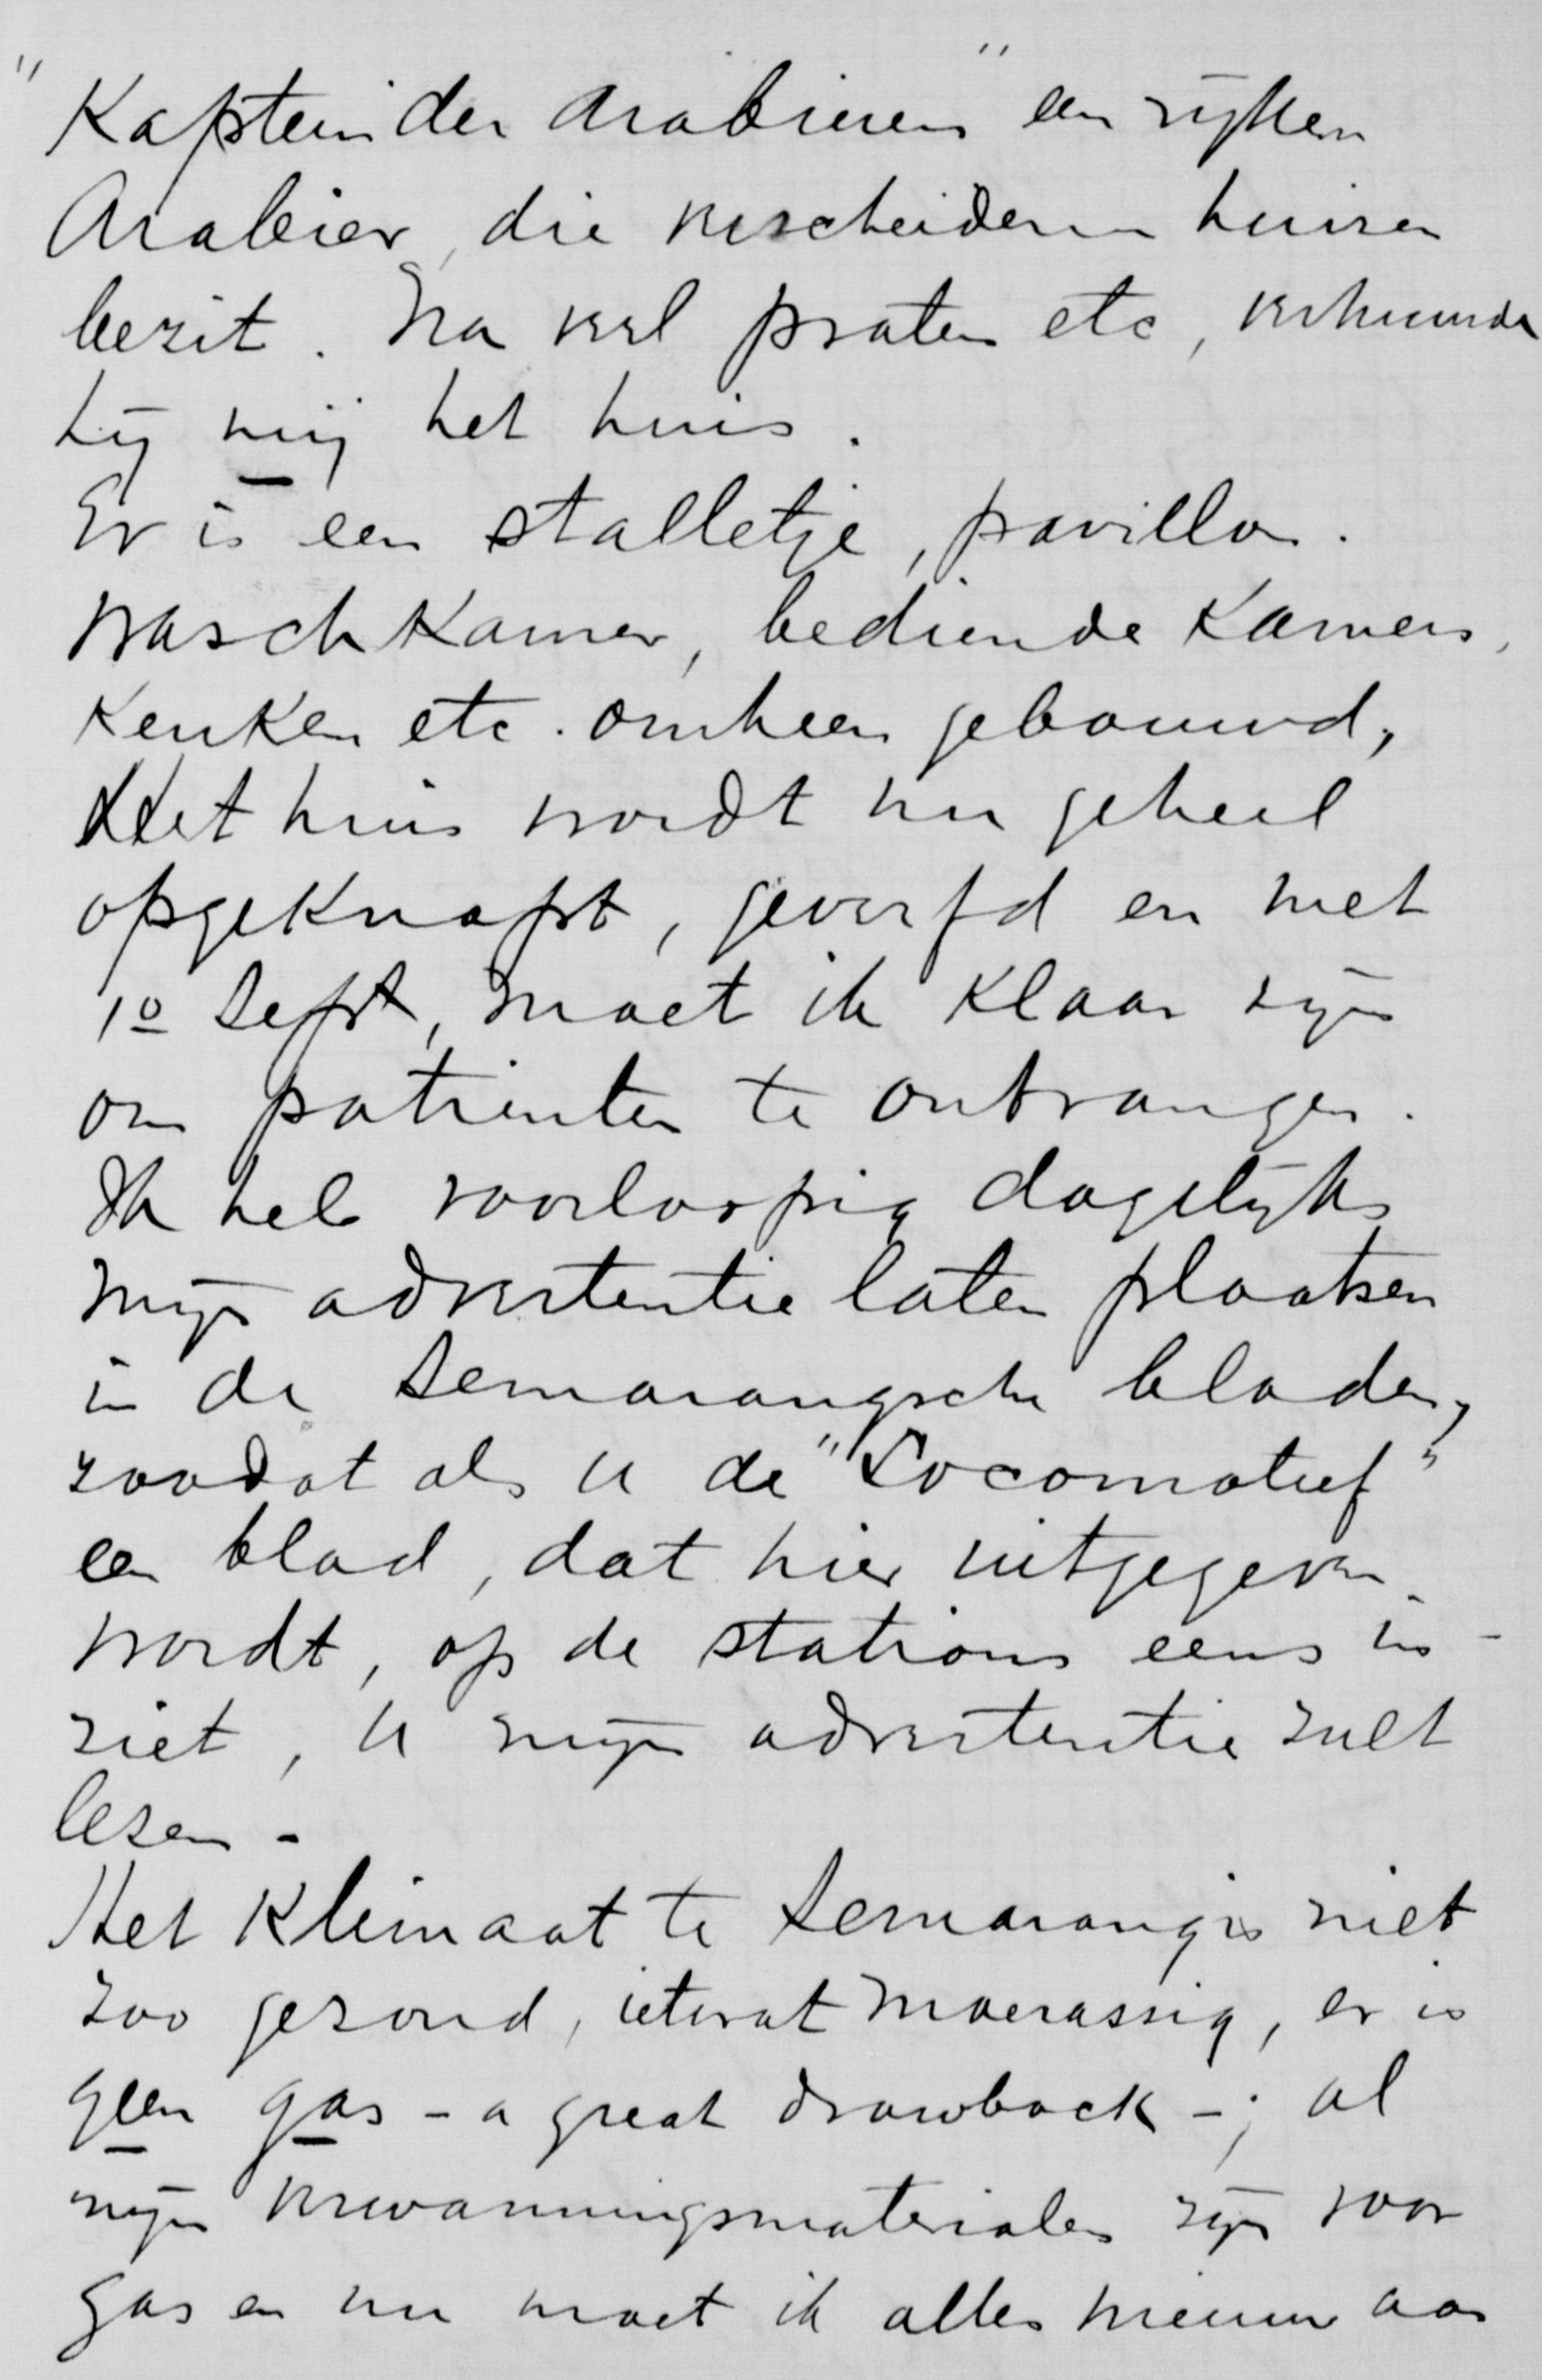 "Kaptein der Arabieren" een rijken
Arabier, die verscheidene huizen
bezit. Na veel praten etc, verhuurde
hij mij het huis.
Er is een stalletje, pavillon.
waschkamer, bediende kamers,
keuken etc. omheen gebouwd,
Het huis wordt nu geheel
opgeknapt, geverfd en met
1º Sept, moet ik klaar zijn
om patienten te ontvangen.
Ik heb voorloopig dagelijks
mijn advertentie laten plaatsen
in de Semarangsche bladen,
zoodat als U de "Locomotief"
een blad, dat hier uitgegeven
wordt, op de stations eens in-
ziet, U mijn advertentie zult
lezen -
Het Klimaat te Semarang is niet
zoo gezond, ietwat moerassig, er is
geen gas - a great drawback -; al
mijn verwarmingsmaterialen zijn voor
gas en nu moet ik alles nieuw aan